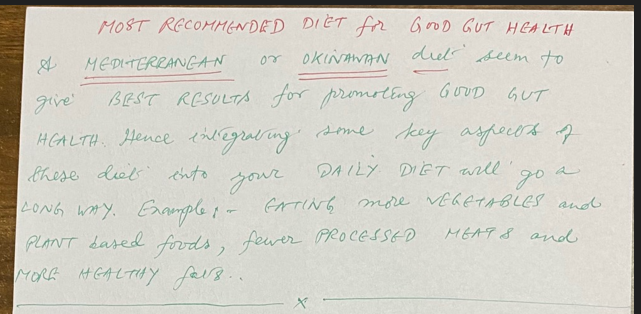 MOST RECOMMENDED DIET for GOOD GUT HEALTH
A MEDITERRANEAN or OKINAWAN diet seem to
give BEST RESULTS for promoting GOOD GUT
HEALTH. Hence integrating some key aspects of
these diet into your DAILY DIET will go a
LONG WAY. Example:- EATING more VEGETABLES and
PLANT based foods, fewer PROCESSED MEATS and
MORE HEALTHY fats..
x